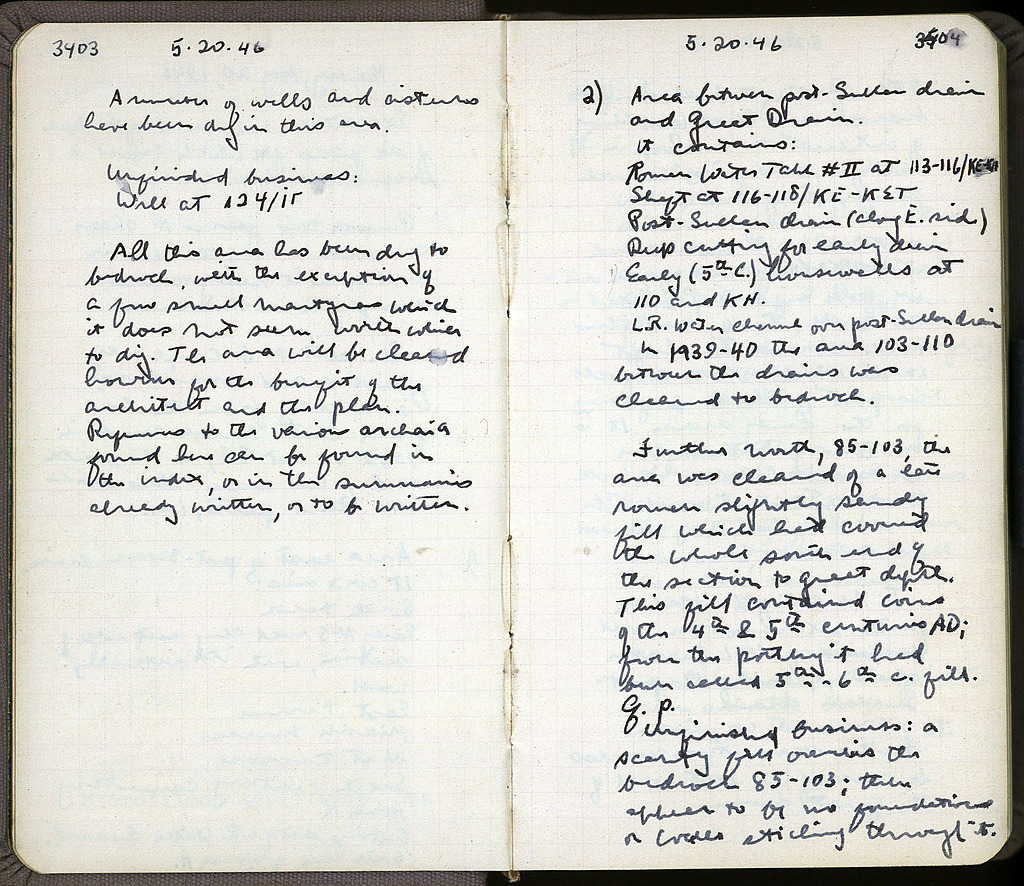 3403 5·20·46
A number of wells and cisterns
have been dug in this area.
Unfinished business:
Well at 124/ΙΓ
All this area has been dug to
bedrock, with the exception of
a few small martyres which
it does not seem worth while
to dig. The area will be cleaned
however for the benefit of the
architect and the plan.
References to the various archaia
found here can be found in
the index, or in the summaries
already written, or to be written.
5·20·46 3404
2) Area between post-Sullan drain
and Great Drain.
It contains:
Roman Water Tank #II at 113-116/
Shaft at 116-118/ΚΕ-ΚΣΤ
Post-Sullan drain (along E. side)
Deep cutting for early drain
Early (5th C.) house walls at
110 and KH.
L.R. water channel over post-Sullan drain
In 1939-40 the area 103-110
between the drains was
cleared to bedrock.
Further north, 85-103, the
area was cleared of a late
roman slightly sandy
fill which had covered
the whole south end of
the section to great depth.
This fill contained coins
of the 4th & 5th centuries AD;
from the pottery it had
been called 5th-6th c. fill.
G. P.
Unfinished business: a
scanty fill overlies the
bedrock 85-103; there
appear to be no foundations
or blocks sticking through it.